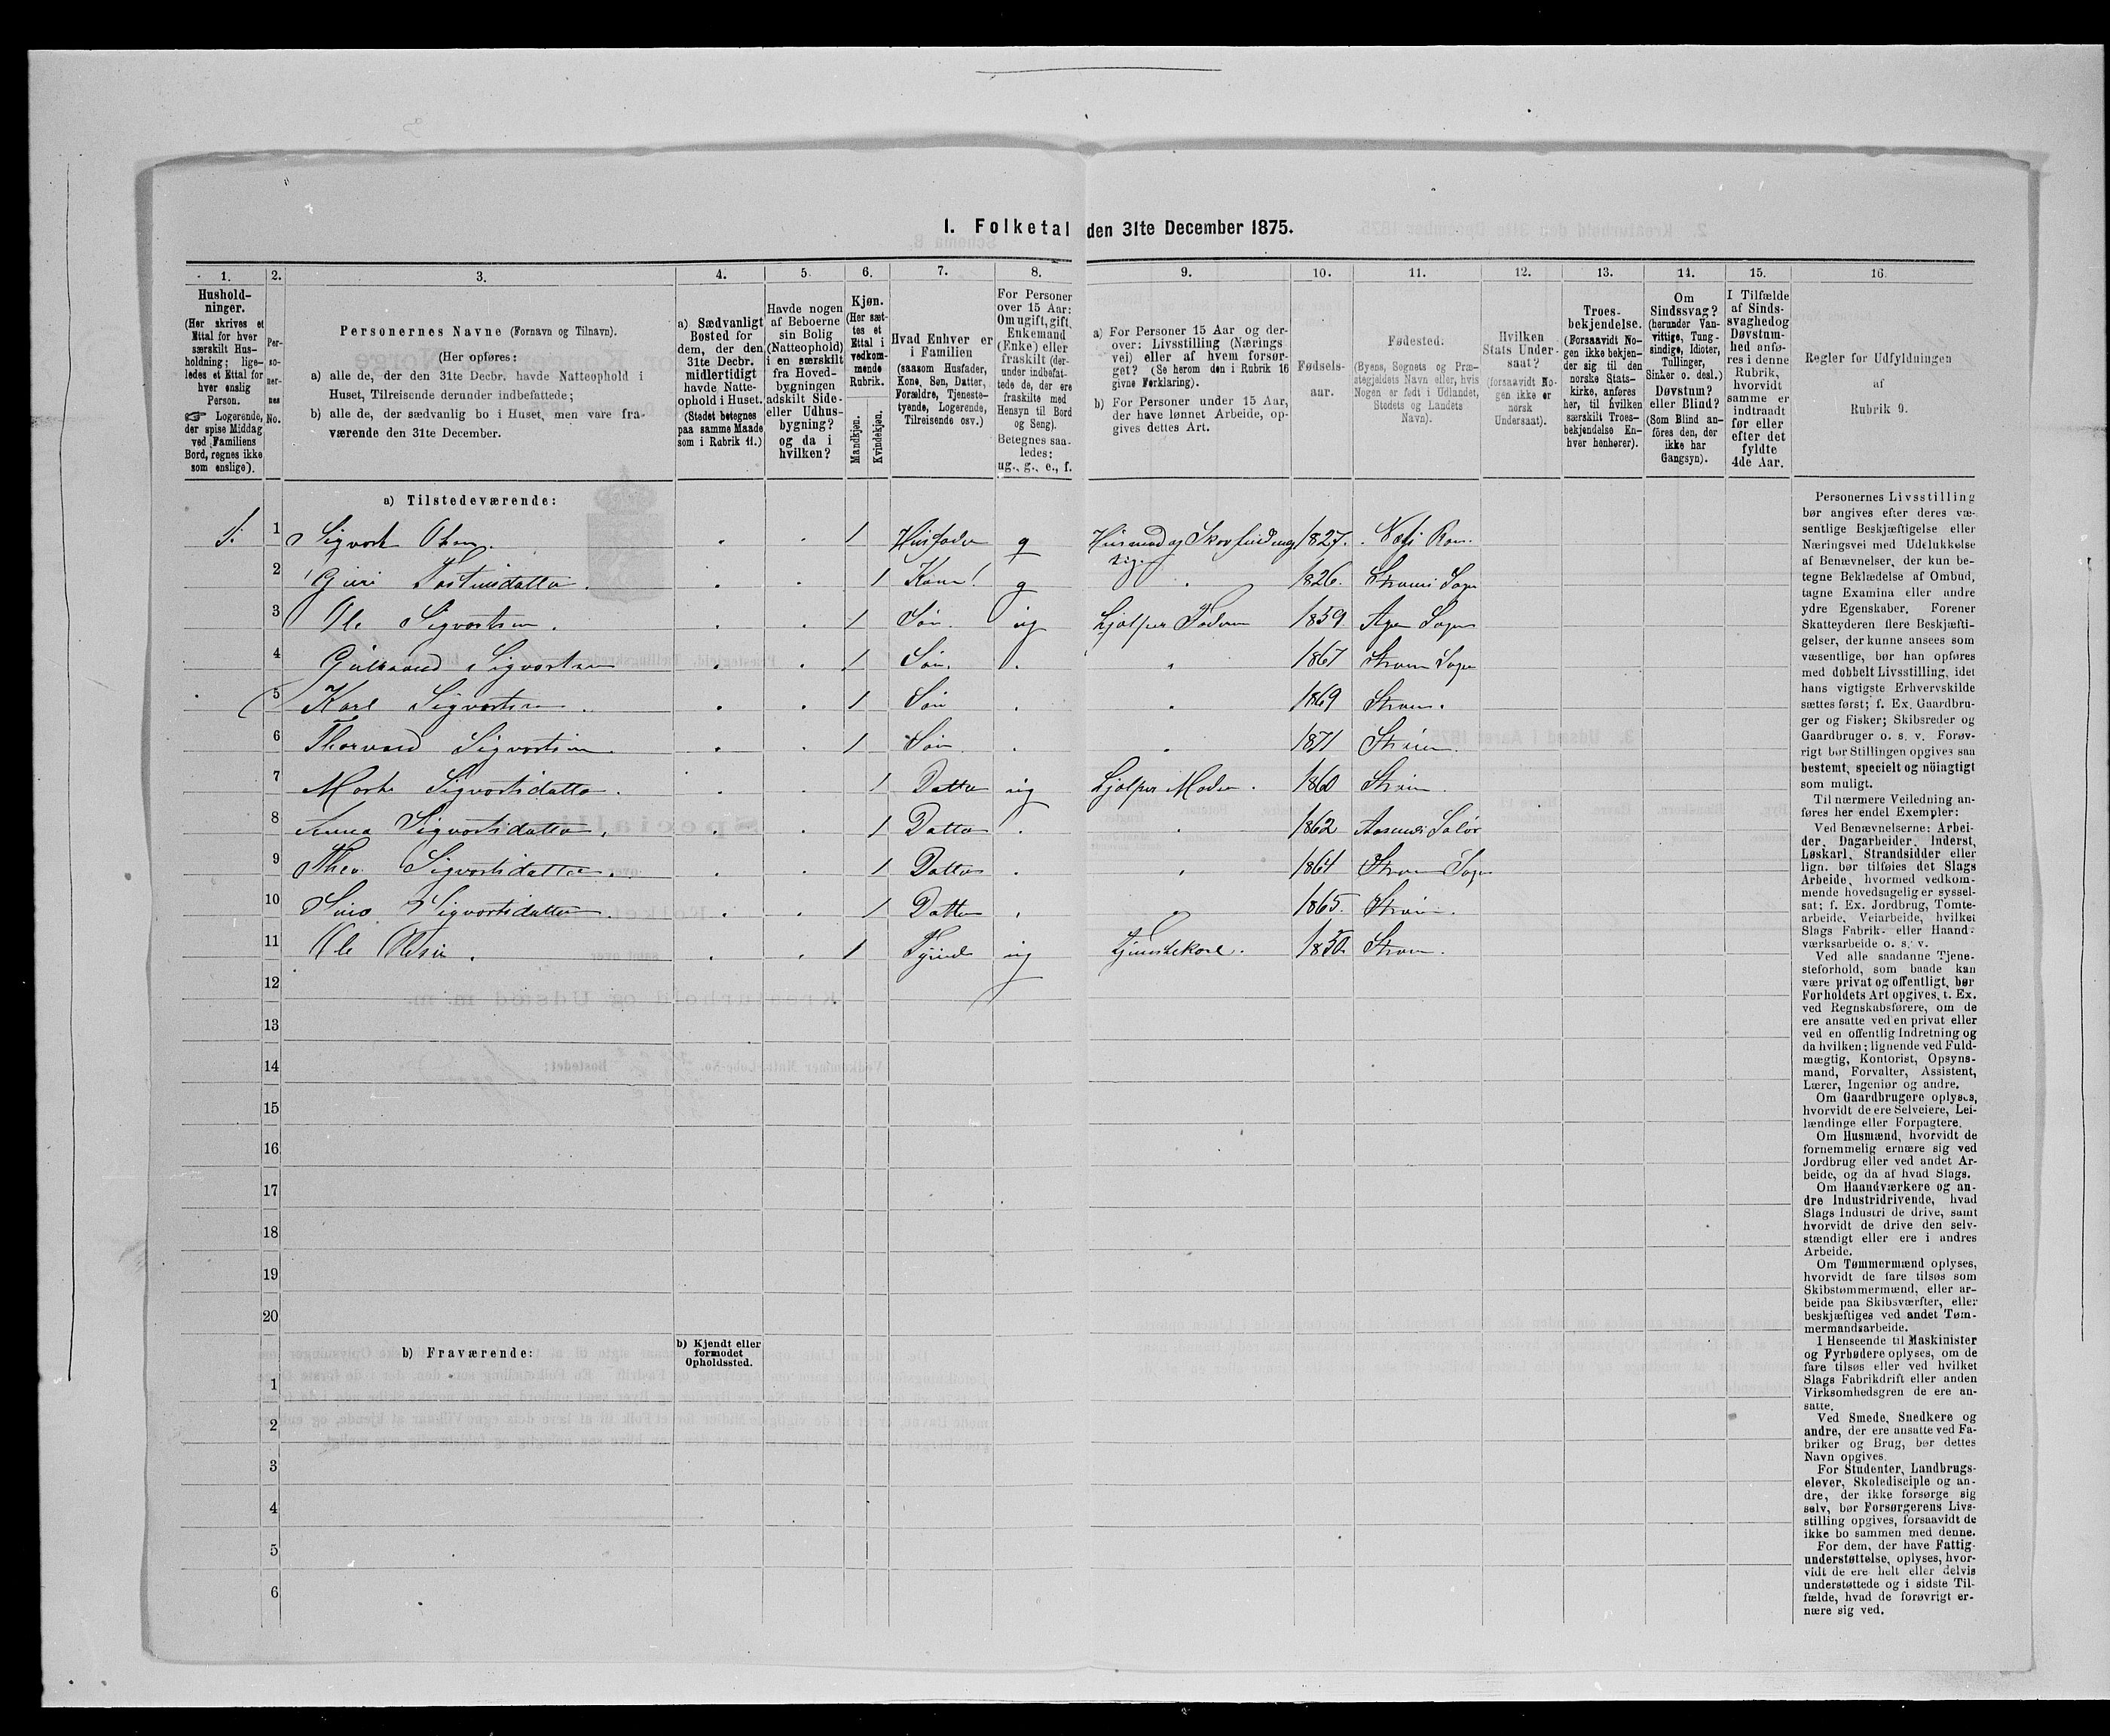 I. Folketal den 31te December 1875.
1. 2. 3. 4. 5. 6. 7. 8. 9. 10. 11. 12. 13. 14. 15. 16.
Hushold-
ninger.
(Her skrives et
Ettal for hver
særskilt Hus-
holdning; lige-
ledes et Ettal for
hver enslig
Person.
☞ Logerende,
der spise Middag
ved Familiens
Bord, regnes ikke
som enslige).
Per-
so-
ner-
nes
No.
Personernes Navne (Fornavn og Tilnavn).
(Her opføres:
a) alle de, der den 31te Decbr. havde Natteophold i
Huset, Tilreisende derunder indbefattede;
b) alle de, der sædvanlig bo i Huset, men vare fra-
værende den 31te December.
a) Sædvanligt
Bosted for
dem, der den
31te Decbr.
midlertidigt
havde Natte-
ophold i Huset.
(Stedet betegnes
paa samme Maade
som i Rubrik 11.)
Havde nogen
af Beboerne
sin Bolig
(Natteophold)
i en særskilt
fra Hoved-
bygningen
adskilt Side-
eller Udhus-
bygning?
og da i
hvilken?
Kjøn.
(Her sæt-
tes et
Ettal i
vedkom-
mende
Rubrik.
Mandkjøn.
Kvindekjøn.
Hvad Enhver er
i Familien
(saasom Husfader,
Kone, Søn, Datter,
Forældre, Tjeneste-
tyende, Logerende,
Tilreisende osv.)
For Personer
over 15 Aar:
Om ugift, gift,
Enkemand
(Enke) eller
fraskilt (der-
under indbefat-
tede de, der ere
fraskilte med
Hensyn til Bord
og Seng).
Betegnes saa-
ledes:
ug., g., e., f.
a) For Personer 15 Aar og der-
over: Livsstilling (Nærings-
vei) eller af hvem forsør-
get? (Se herom den i Rubrik 16
givne Forklaring).
b) For Personer under 15 Aar,
der have lønnet Arbeide, op-
gives dettes Art.
Fødsels-
aar.
Fødested.
(Byens, Sognets og Præ-
stegjeldets Navn eller, hvis
Nogen er født i Udlandet,
Stedets og Landets
Navn).
Hvilken
Stats Under-
saat?
(forsaavidt No-
gen ikke er
norsk
Undersaat).
Troes-
bekjendelse.
(Forsaavidt No-
gen ikke bekjen-
der sig til den
norske Stats-
kirke, anføres
her, til hvilken
særskilt Troes-
bekjendelse En-
hver henhører).
Om
Sindssvag?
(herunder Van-
vittige, Tung-
sindige, Idioter,
Tullinger,
Sinker o. desl.)
Døvstum?
eller Blind?
(Som Blind an-
föres den, der
ikke har
Gangsyn).
I Tilfælde
af Sinds-
svaghed og
Døvstum-
hed anfø-
res i denne
Rubrik,
hvorvidt
samme er
indtraadt
før eller
efter det
fyldte
4de Aar.
Regler for Udfyldningen
af
Rubrik 9.
a) Tilstedeværende:
1 Sigvort 1 Husfader g 1827.
2 1 Kone g 1826. Sogn
3 Ole Sigvortsen. 1 Søn. ug Hjælper Faderen 1859. Sogn
4 Sigvortsen 1 Søn. 1867 Strøm Sogn
5 Karl Sigvortsen 1 Søn 1869 Strøm.
6 Thorvard Sigvortsen. 1 Søn 1871 Strøm.
7 Marte Sigvortsdatter. 1 Datter ug Hjælper Moder. 1860 Strøm.
8 Anna Sigvortsdatter. 1 Datter 1862 Solør
9 Thea Sigvortsdatter. 1 Datter 1864 Strøm Sogn
10 Sigvortsdatter. 1 Datter 1865. Strøm.
11 Ole Olsen. 1 ug Tjenestekarl. 1850. Strøm.
12
13
14
15
16
17
18
19
20
b) Fraværende:
b) Kjendt eller
formodet
Opholdssted.
1
2
3
4
5
6
Personernes Livsstilling
bør angives efter deres væ-
sentlige Beskjæftigelse eller
Næringsvei med Udelukkelse
af Benævnelser, der kun be-
tegne Beklædelse af Ombud,
tagne Examina eller andre
ydre Egenskaber. Forener
Skatteyderen flere Beskjæfti-
gelser, der kunne ansees som
væsentlige, bør han opføres
med dobbelt Livsstilling, idet
hans vigtigste Erhvervskilde
sættes først; f. Ex. Gaardbru-
ger og Fisker; Skibsreder og
Gaardbruger o. s. v. Forøv-
rigt bør Stillingen opgives saa
bestemt, specielt og nöiagtigt
som muligt.
Til nærmere Veiledning an-
føres her endel Exempler:
Ved Benævnelserne: Arbei-
der, Dagarbeider, Inderst,
Løskarl, Strandsidder eller
lign. bør tilføies det Slags
Arbeide, hvormed vedkom-
mende hovedsagelig er syssel-
sat; f. Ex. Jordbrug, Tomte-
arbeide, Veiarbeide, hvilket
Slags Fabrik- eller Haand-
værksarbeide o. s. v.
Ved alle saadanne Tjene-
steforhold, som baade kan
være privat og offentligt, bør
Forholdets Art opgives, t. Ex.
ved Regnskabsførere, om de
ere ansatte ved en privat eller
ved en offentlig Indretning og
da hvilken; lignende ved Fuld-
mægtig, Kontorist, Opsyns-
mand, Forvalter, Assistent,
Lærer, Ingeniør og andre.
Om Gaardbrugere oplyses,
hvorvidt de ere Selveiere, Lei-
lændinge eller Forpagtere.
Om Husmænd, hvorvidt de
fornemmelig ernære sig ved
Jordbrug eller ved andet Ar-
beide, og da af hvad Slags.
Om Haandværkere og an-
dre Industridrivende, hvad
Slags Industri de drive, samt
hvorvidt de drive den selv-
stændigt eller ere i andres
Arbeide.
Om Tømmermænd oplyses,
hvorvidt de fare tilsøs som
Skibstømmermænd, eller ar-
beide paa Skibsværfter, eller
beskjæftiges ved andet Tøm-
mermandsarbeide.
I Henseende til Maskinister
og Fyrbødere oplyses, om de
fare tilsøs eller ved hvilket
Slags Fabrikdrift eller anden
Virksomhedsgren de ere an-
satte.
Ved Smede, Snedkere og
andre, der ere ansatte ved Fa-
briker og Brug, bør dettes
Navn opgives.
For Studenter, Landbrugs-
elever, Skoledisciple og an-
dre, der ikke forsørge sig
selv, bør Forsørgerens Livs-
stilling opgives, forsaavidt de
ikke bo sammen med denne.
For dem, der have Fattig-
understøttelse, oplyses, hvor-
vidt de ere helt eller delvis
understøttede og i sidste Til-
fælde, hvad de forøvrigt er-
nære sig ved.